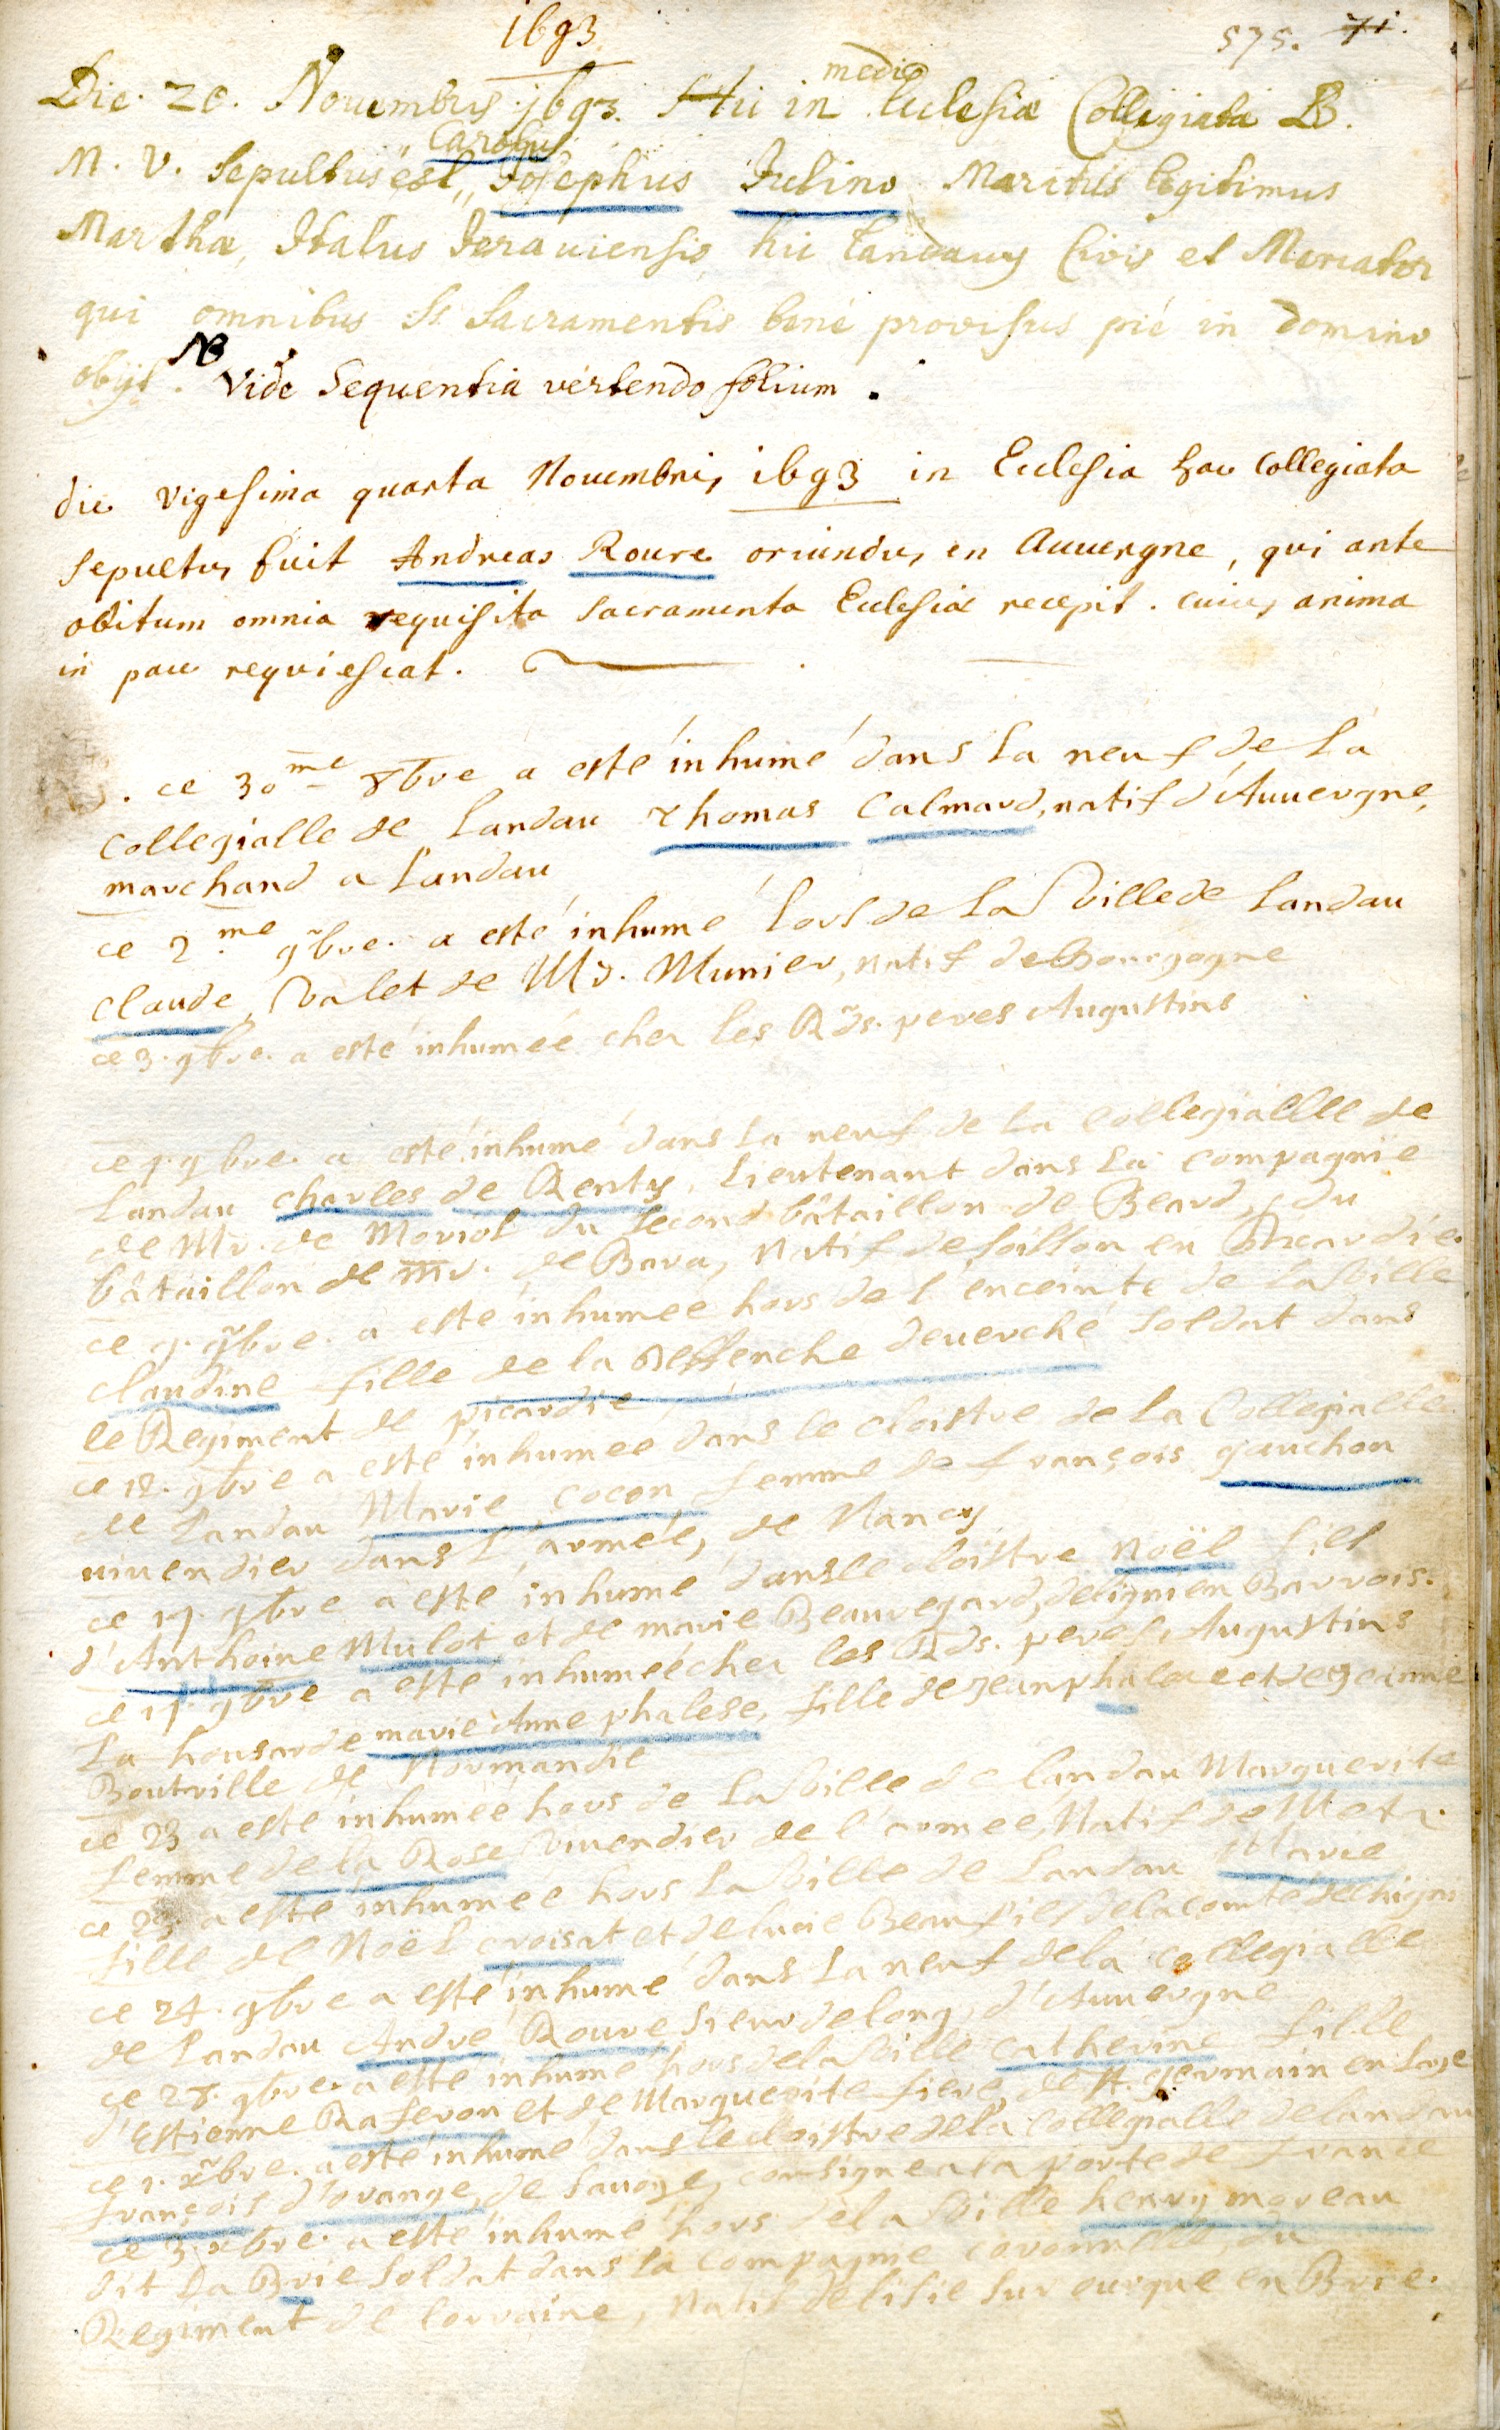 1693
575. 71.
Die. 20. Nouembris 1693. Hii in medio Ecclesiæ Collegiatæ B.
M. V. Sepultus est, Carolus Josephus Julino Maritus legitimus
Marthæ, Italus hic Landauij Civis et Mercator
qui omnibus Ss. Sacramentis bené provisus pié in domino
obijt. NB Vide Sequentia vertendo folium.
die vigesima quarta Nouembris 1693 in Ecclesia hac Collegiata
sepultus fuit Andreas Roure oriundus en Auuergne, qui ante
obitum omnia requisita sacramenta Ecclesiæ recepit. cuius anima
in pace requiescat.
ce 30me 8bre a esté inhumé dans La neuf de La
Collegialle de Landau Thomas Calmard, natif d'Auuergne,
marchand a Landau
ce 2me 9bre. a esté inhumé hors de La Ville de Landau
Claude, Valet de Mr. Munier, natif de Bourgogne
ce 3. 9bre. a esté inhumée cher les Rds. peres Augustins
ce 9. 9bre. a esté inhumé dans La neuf de La Collegiallle de
Landau Charles de Renty, Lieutenant dans La Compagnïe
de Mr. de Moriol du second bâtaillon de Beard, du
bâtaillon de mr. de Bara, Natif de soisson en Picardie.
ce 9. 9bre. a esté inhumée hors de l'enceinte de La Ville
Claudine fille de la Deffenche deuerché soldat dans
le Regiment de picardie
ce 12. 9bre a esté inhumée dans le cloistre de La Collegialle
de Landau Marie Cocon femme de françois gauchon
uiuendier dans l'armée, de Nancy
ce 17. 9bre a esté inhumé dans le cloistre Noël fils
d'Anthoine Mulot et de marie Beauregard, de ligni en Barrois.
ce 17. 9bre a esté inhumée cher les Rds. peres Augustins
La housarde marie Anne phalese, fille de Jean phalese et de Jeanne
Boutville de Normandie
ce 23 a esté inhumée hors de La Ville de Landau Marguerite
femme de la Rose Viuendier de l'armée, Natif de Metz.
ce 23. a esté inhumée hors La Ville de Landau Marie
fille de Noël croisat et de lucie Beaufils de la comté de
ce 24. 9bre a esté inhumé dans La neuf de la collegialle
de Landau André Roure Sieur de long, d'Auuergne
ce 28. 9bre. a esté inhumé hors de la Ville catherine fille
d'Estienne Raferon et de Marguerite fiere, de St. germain en Laye
ce 1. xbre. a esté inhumé dans le cloistre de la Collegialle de landau
françois d'orange, de Sauoye, consigne a la porte de france
ce 3. xbre. a esté inhumé hors de la Ville henry moreau
dit La Brie soldat dans la compagnie coronnelle, du
Regiment de lorraine, Natif de lisie sur ourque en Brie.